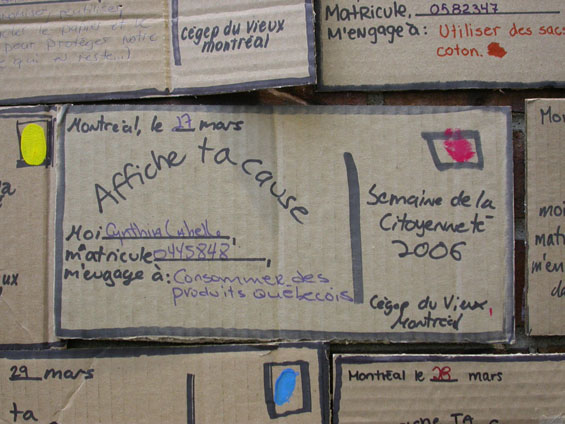 pour protéger notre
Cégep du Vieux
montréal
Matricule, 0582347
M'engage à: Utiliser des sacs
coton.
Montréal, le 27 mars
Affiche ta cause
Moi Cynthia Labelle,
matricule 0445848,
m'engage à: Consommer des
produits québécois
Semaine de la
Citoyenneté
2006
Cégep du Vieux
Montréal
moi
29 mars
ta
Montréal le 28 mars